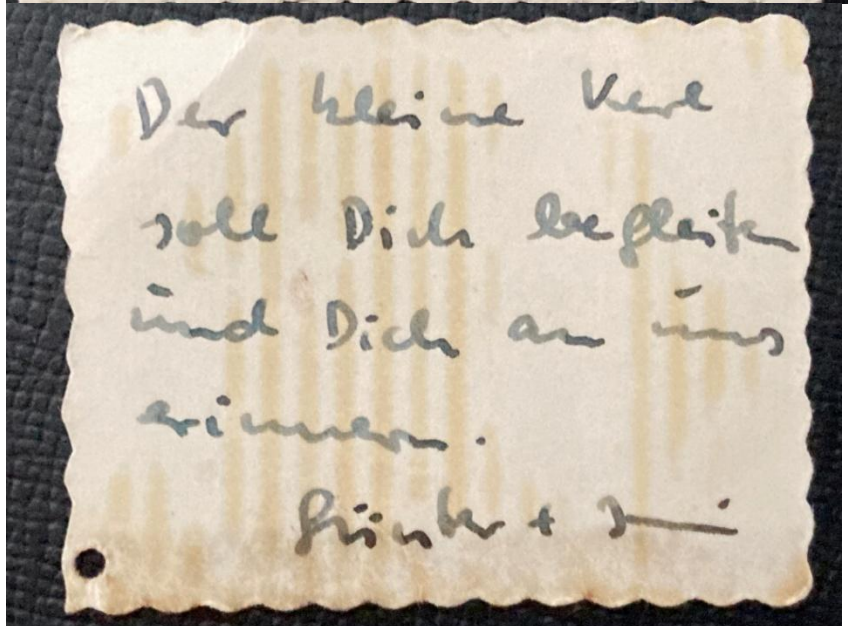 Der kleine Kerl
soll Dich begleiten
und Dich an uns
erinnern.
Günter +